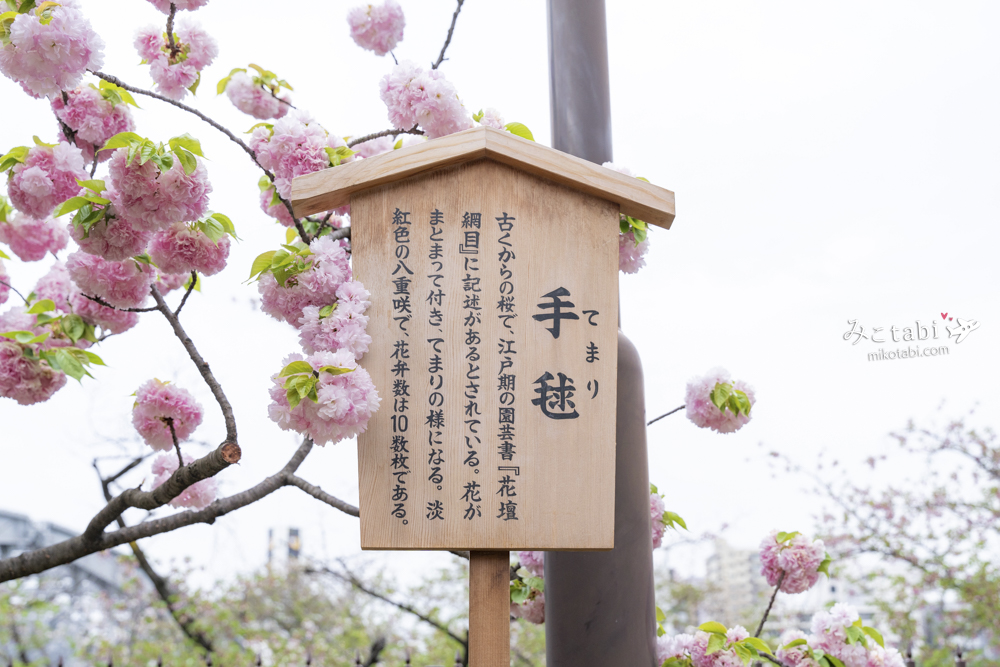 手毬
てまり
古くからの桜で、江戸期の園芸書『花壇
網目』に記述があるとされている。花が
まとまって付き、てまりの様になる。淡
紅色の八重咲で、花弁数は10数枚である。
みこtabi
mikotabi.com